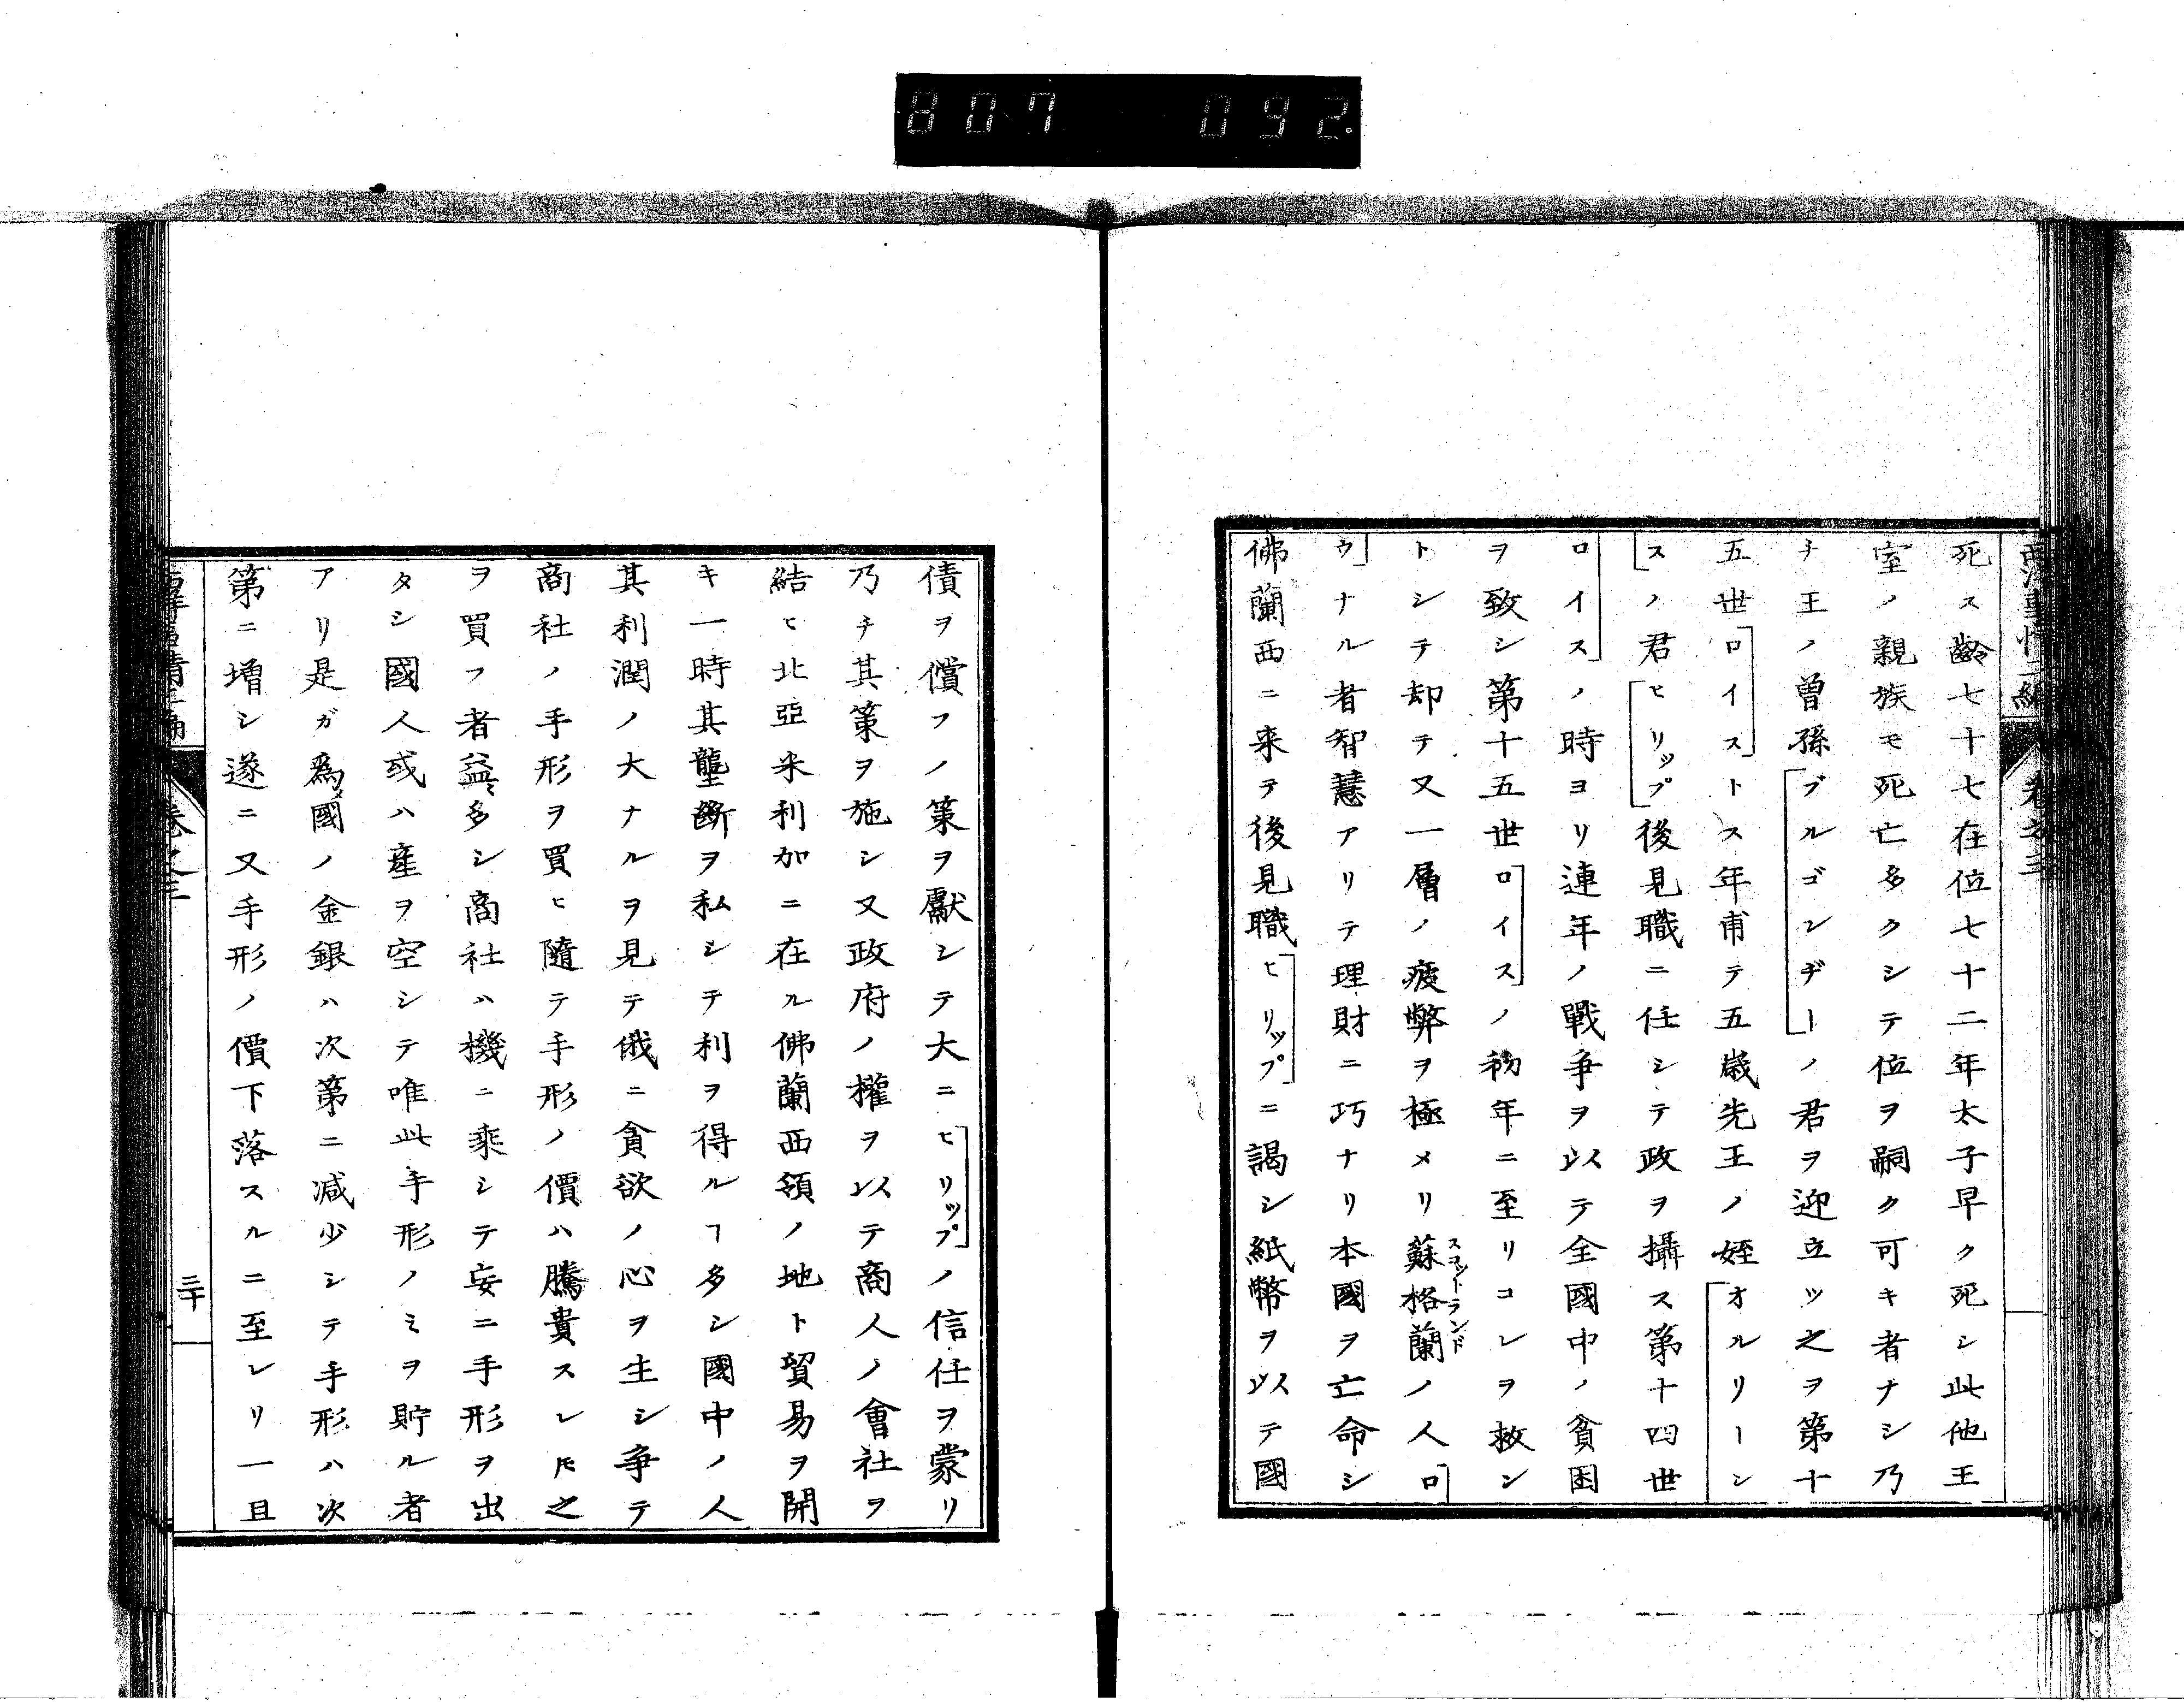 807 092.
死ス齢七十七在位七十二年太子早ク死シ此他王
室ノ親族モ死亡多クシテ位ヲ嗣ク可キ者ナシ乃
チ王ノ曽孫「ブルゴンヂー」ノ君ヲ迎立ツ之ヲ第十
五世「ロイス」トス年甫テ五歳先王ノ姪「オルリーン
ス」ノ君「ヒリップ」後見職ニ任シテ政ヲ攝ス第十四世
「ロイス」ノ時ヨリ連年ノ戰爭ヲ以テ全國中ノ貧困
ヲ致シ第十五世「ロイス」ノ初年ニ至リコレヲ救ン
トシテ却テ又一層ノ疲弊ヲ極メリ蘇格蘭ノ人「ロ
スコットランド
ウ」ナル者智慧アリテ理財ニ巧ナリ本國ヲ亡命シ
佛蘭西ニ来テ後見職「ヒリップ」ニ謁シ紙幣ヲ以テ國
債ヲ償フノ策ヲ獻シテ大ニ「ヒリップ」ノ信任ヲ蒙リ
乃チ其策ヲ施シ又政府ノ權ヲ以テ商人ノ會社ヲ
結ヒ北亞米利加ニ在ル佛蘭西領ノ地ト貿易ヲ開
キ一時其壟斷ヲ私シテ利ヲ得ルヿ多シ國中ノ人
其利潤ノ大ナルヲ見テ俄ニ貪欲ノ心ヲ生シ爭テ
商社ノ手形ヲ買ヒ隨テ手形ノ價ハ騰貴スレ𪜈之
ヲ買フ者益々多シ商社ハ機ニ乘シテ妄ニ手形ヲ出
タシ國人或ハ産ヲ空シテ唯此手形ノミヲ貯ル者
アリ是ガ爲メ國ノ金銀ハ次第ニ减少シテ手形ハ次
第ニ増シ遂ニ又手形ノ價下落スルニ至レリ一旦
三十